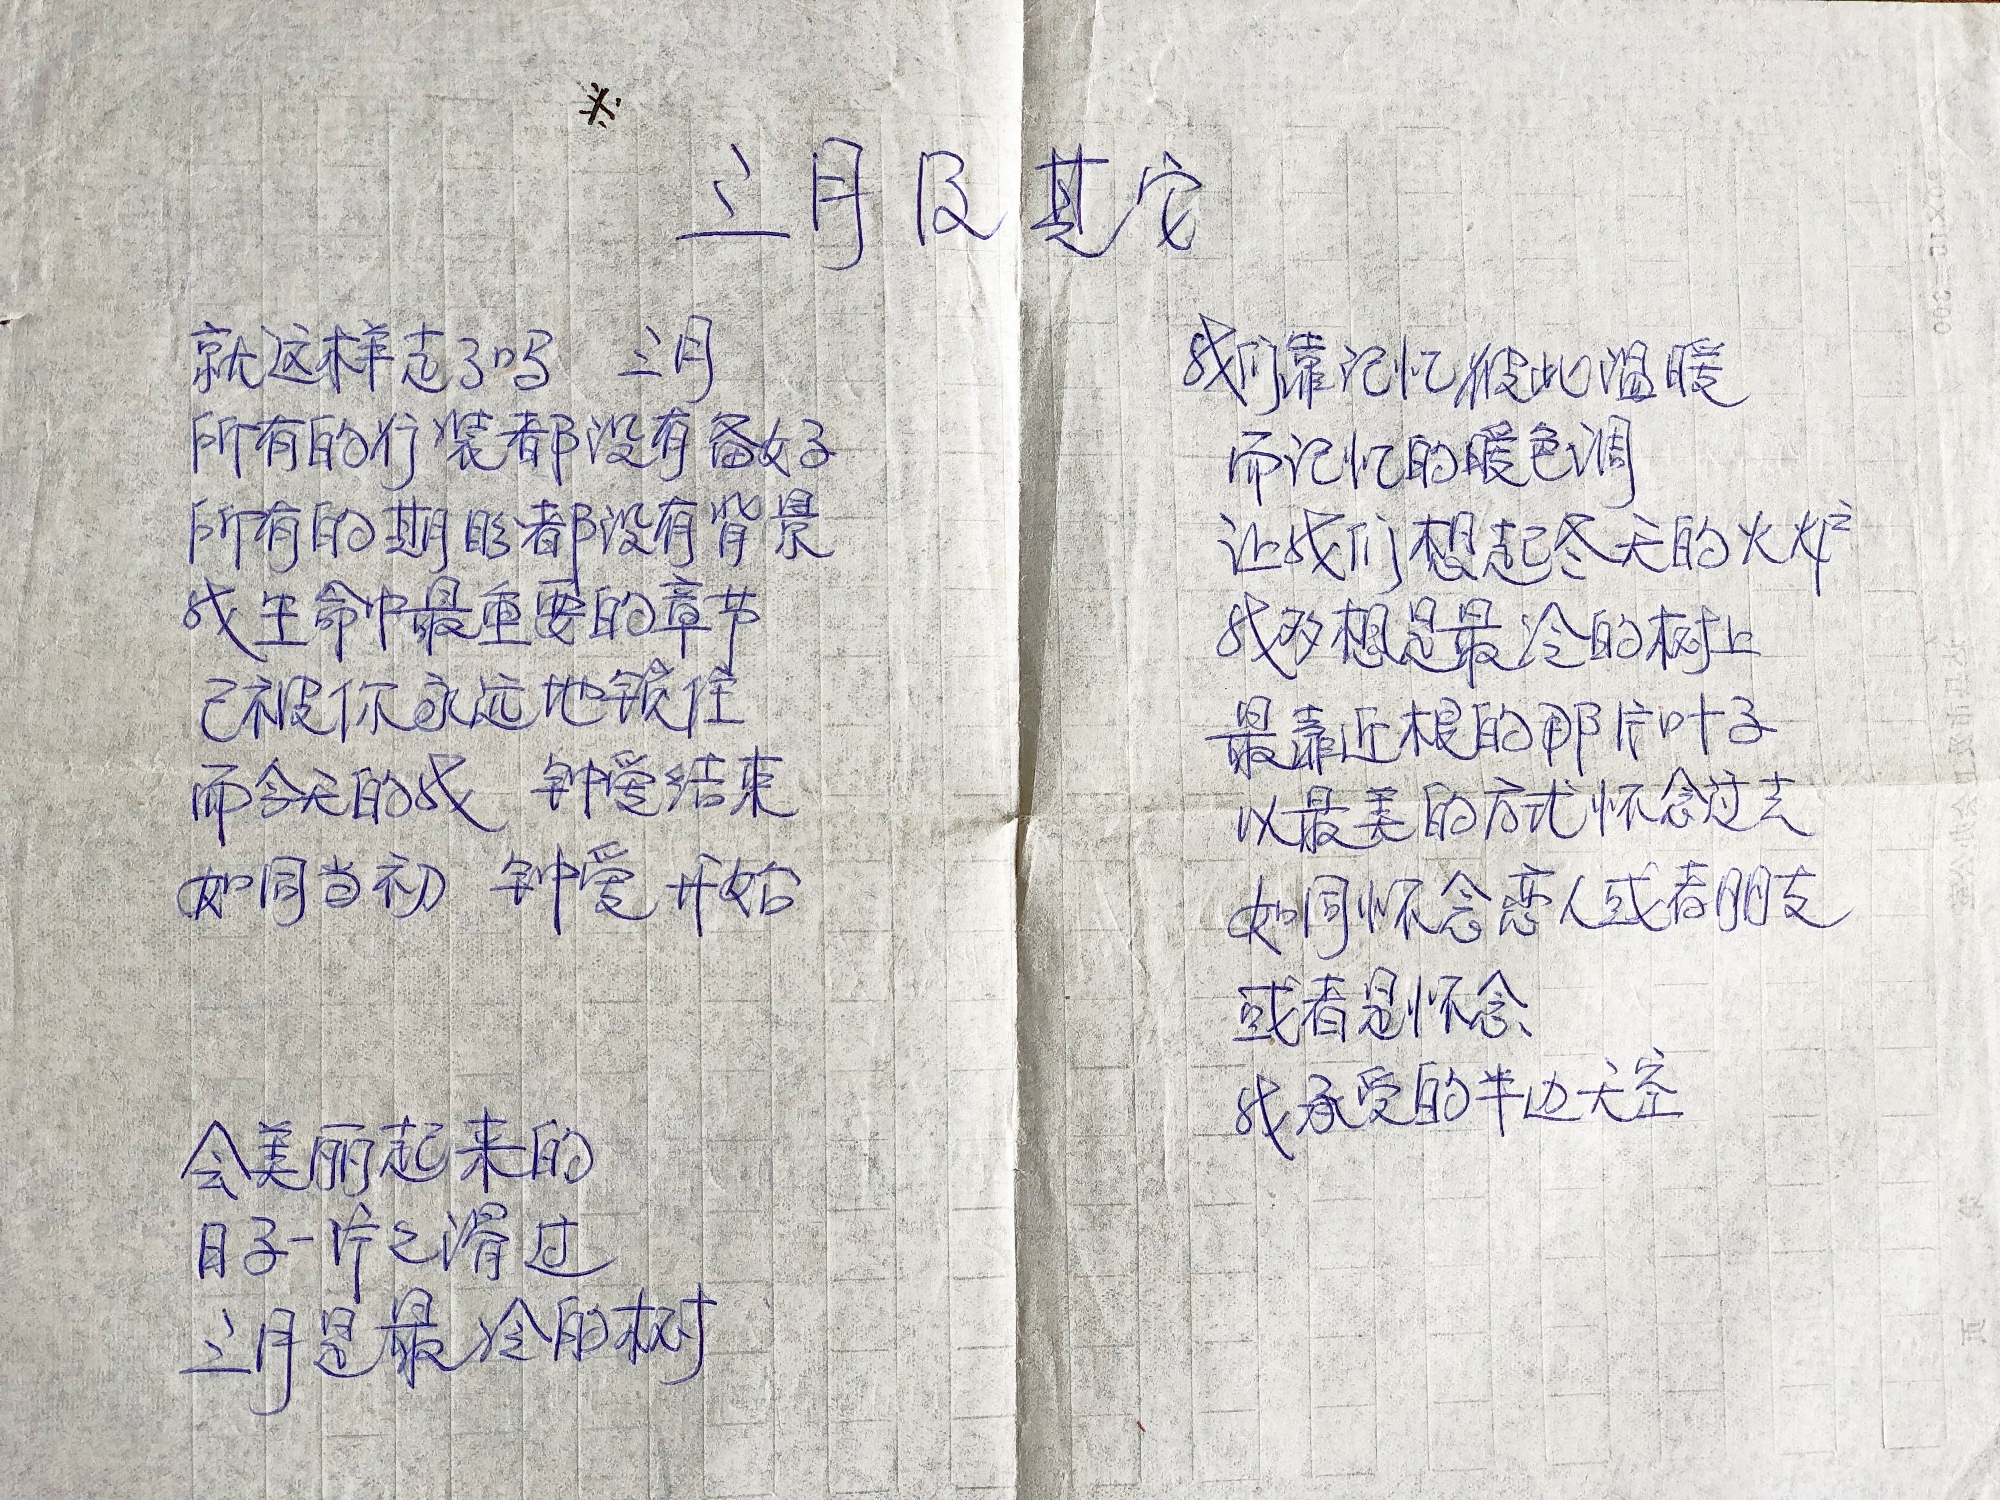 三月及其它
就这样走了吗　三月
所有的行装都没有备好
所有的期盼都没有背景
我生命中最重要的章节
已被你永远地锁住
而今天的我　钟爱结束
如同当初　钟爱开始
会美丽起来的
日子一片片滑过
三月是最冷的树
我们靠记忆彼此温暖
而记忆的暖色调
让我们想起冬天的火炉
我多想是最冷的树上
最靠近根的那片叶子
以最美的方式怀念过去
如同怀念恋人或者朋友
或者是怀念
我承受的半边天空